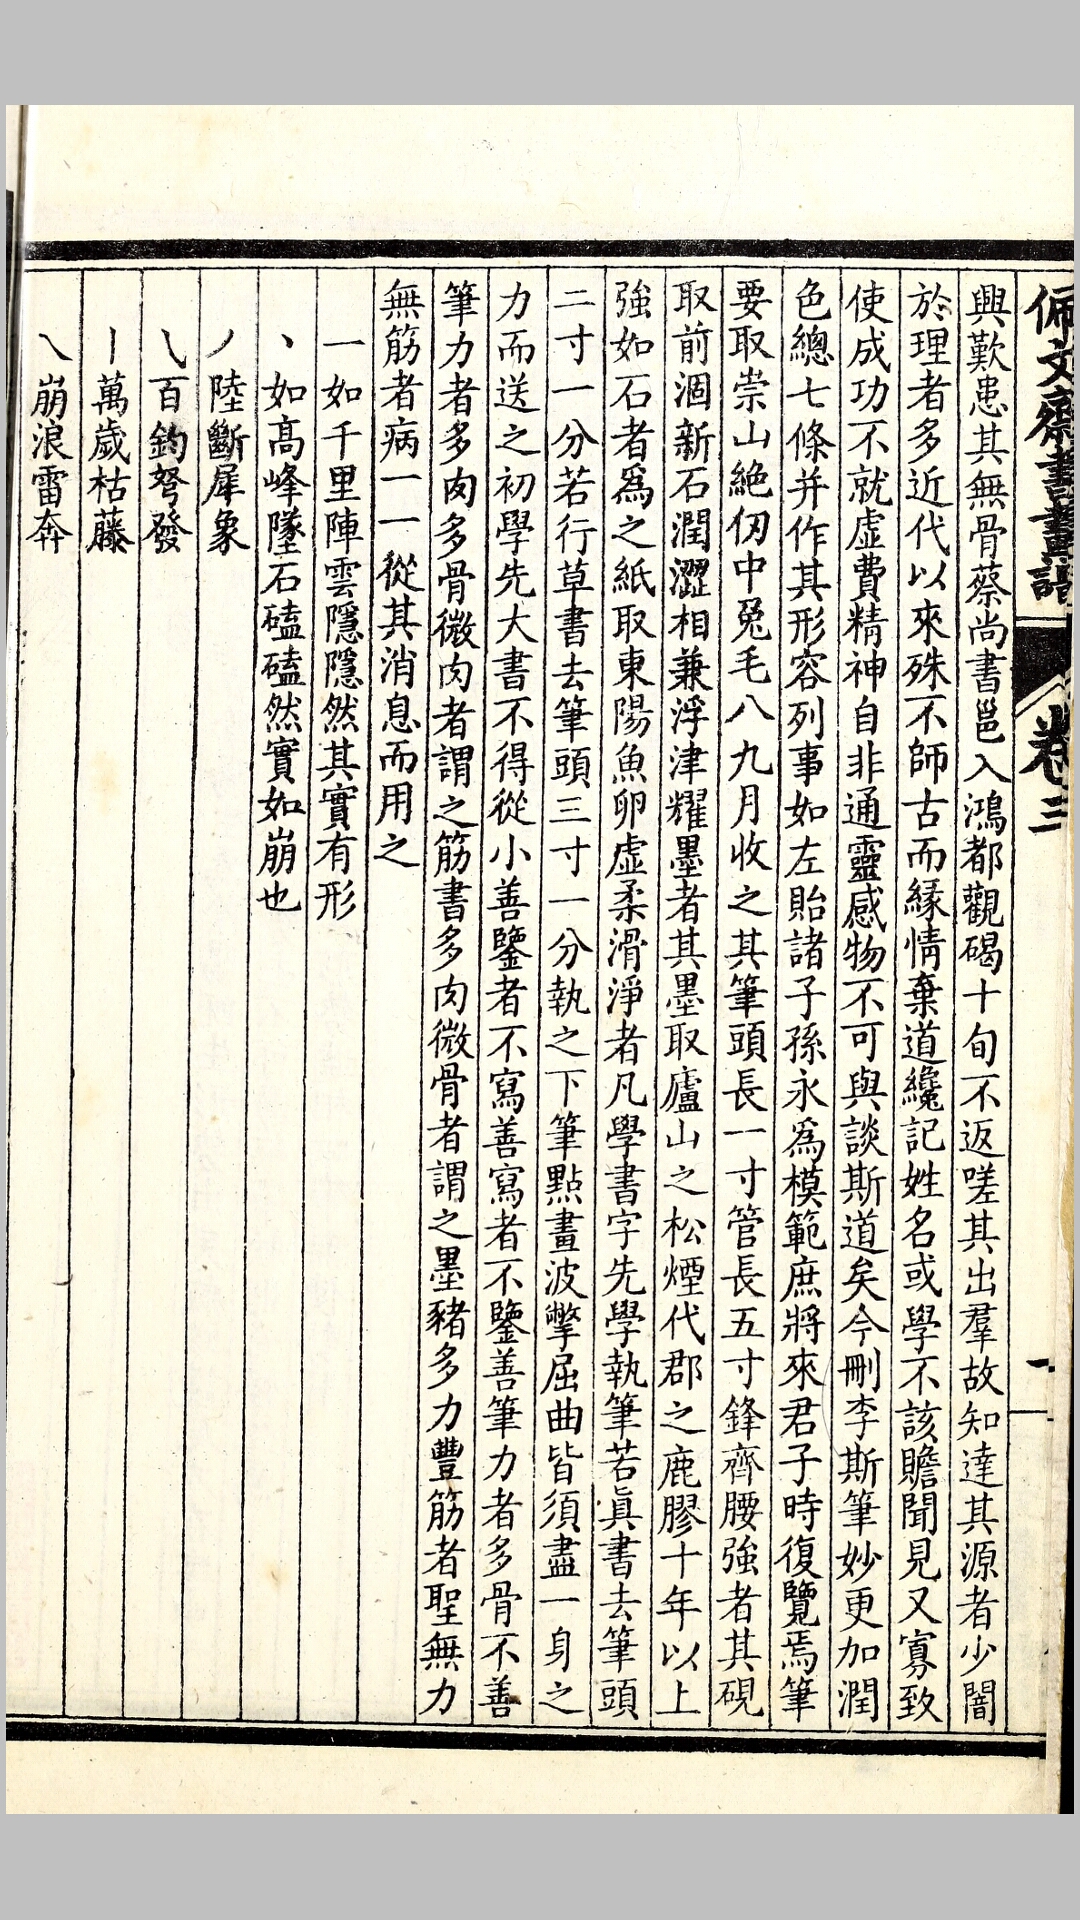 佩文齋書畫譜 卷三 一
興歎患其無骨蔡尚書邕入鴻都觀碣十旬不返嗟其出羣故知達其源者少闇
於理者多近代以來殊不師古而緣情棄道纔記姓名或學不該贍聞見又寡致
使成功不就虛費精神自非通靈感物不可與談斯道矣今刪李斯筆妙更加潤
色總七條并作其形容列事如左貽諸子孫永爲模範庶將來君子時復覽焉筆
要取崇山絶仞中兔毛八九月收之其筆頭長一寸管長五寸鋒齊腰強者其硯
取前涸新石潤澀相兼浮津耀墨者其墨取廬山之松煙代郡之鹿膠十年以上
強如石者爲之紙取東陽魚卵虛柔滑淨者凡學書字先學執筆若眞書去筆頭
二寸一分若行草書去筆頭三寸一分執之下筆點畫波撆屈曲皆須盡一身之
力而送之初學先大書不得從小善鑒者不寫善寫者不鑒善筆力者多骨不善
筆力者多肉多骨微肉者謂之筋書多肉微骨者謂之墨豬多力豐筋者聖無力
無筋者病一一從其消息而用之
一如千里陣雲隱隱然其實有形
丶如高峰墜石磕磕然實如崩也
丿陸斷犀象
乀百鈞弩發
丨萬歲枯藤
乀崩浪雷奔